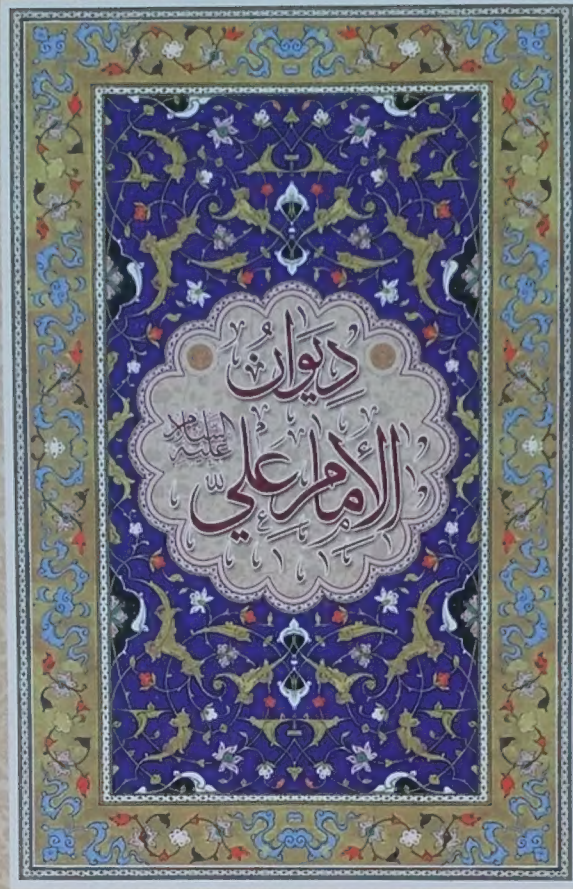 دِيوَانُ
الإِمَامِ عَلِيّ عليه السلام